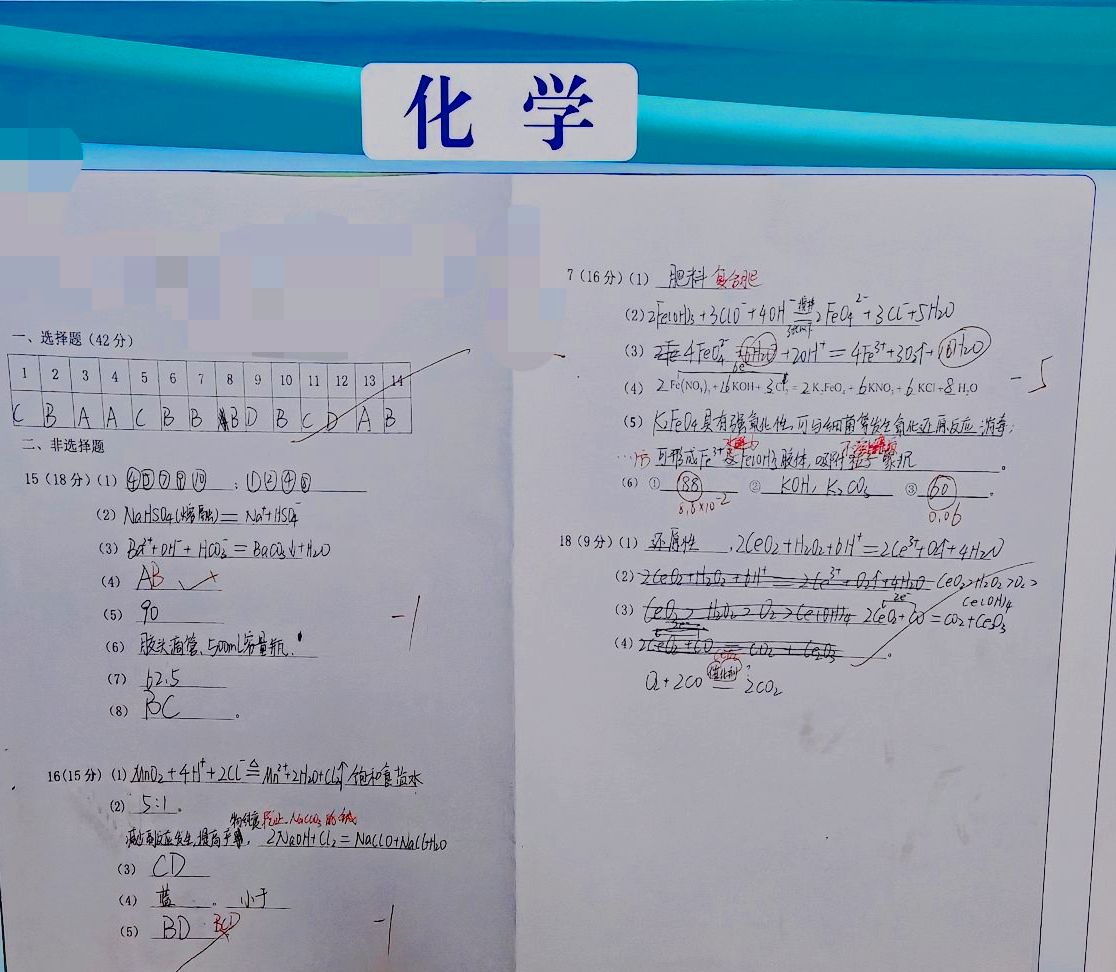 化 学
一、选择题（42分）
1 2 3 4 5 6 7 8 9 10 11 12 13 14
C B A A C B B B D B C D A B
二、非选择题
15（18分）（1）④⑤⑦⑨⑩ ; ①②④⑥
（2）NaHSO4(熔融) = Na⁺+HSO4⁻
（3）Ba²⁺+OH⁻+HCO3⁻=BaCO3↓+H2O
（4）AB
（5）90
（6）胶头滴管、500ml容量瓶.
（7）62.5
（8）BC 。
-1
16（15分）（1）MnO2+4H⁺+2Cl⁻ ≜ Mn²⁺+2H2O+Cl2↑ 饱和食盐水
（2）5:1 。
防止 NaClO3 的
减少副反应发生,提高产率, 2NaOH+Cl2=NaClO+NaCl+H2O
（3）CD
（4）蓝 。小于
（5）BD BCD
-1
7（16分）（1）肥料 复合肥
（2）2Fe(OH)3+3ClO⁻+4OH⁻ = 2FeO4²⁻+3Cl⁻+5H2O
（3）4FeO4²⁻ +20H⁺=4Fe³⁺+3O2↑+10H2O
（4）2Fe(NO3)3+16KOH+3Cl2=2K2FeO4+6KNO3+6KCl+8H2O
-5
（5）K2FeO4具有强氧化性,可与细菌等发生氧化还原反应消毒;
可形成Fe³⁺ Fe(OH)3胶体,吸附 。
（6）① 88 ② KOH、K2CO3 ③ 60 。
8.8×10⁻² 0.06
18（9分）（1）还原性 , 2CeO2+H2O2+6H⁺=2Ce³⁺+O2↑+4H2O
（2）2CeO2+H2O2+6H⁺=2Ce³⁺+O2↑+4H2O CeO2>H2O2>O2>
Ce(OH)4
（3）CeO2>H2O2>O2>Ce(OH)4 2CeO2+CO=CO2+Ce2O3
（4）2CeO2+CO=CO2+Ce2O3 。
O2+2CO 催化剂 = 2CO2